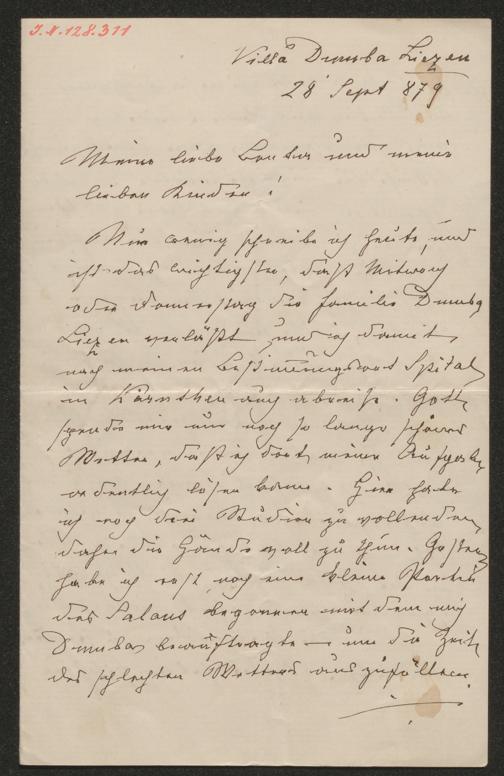 I.N.128.311
Villa Dumba Liezen
28 Sept 879
Meine liebe Bertha und meine
lieben Kinder!
Nur wenig schreibe ich heute, und
ist das wichtigste, daß Mitwoch
oder Donnerstag die Familie Dumba
Liezen verläßt und ich damit
nach meinen Bestim̄ungsort Spital
in Kärnthen auch abreise. Gott
spende mir nur noch so lange schönes
Wetter, daß ich dort meine Aufgabe
ordentlich lösen kann. Hier habe
ich noch drei Studien zu vollenden
daher die Hände voll zu thun. Gestern
habe ich erst noch eine kleine Parthie
des Salons begonnen mit dem mich
Dumba beauftragte – um die Zeit
des schlechten Wetters auszufüllen.